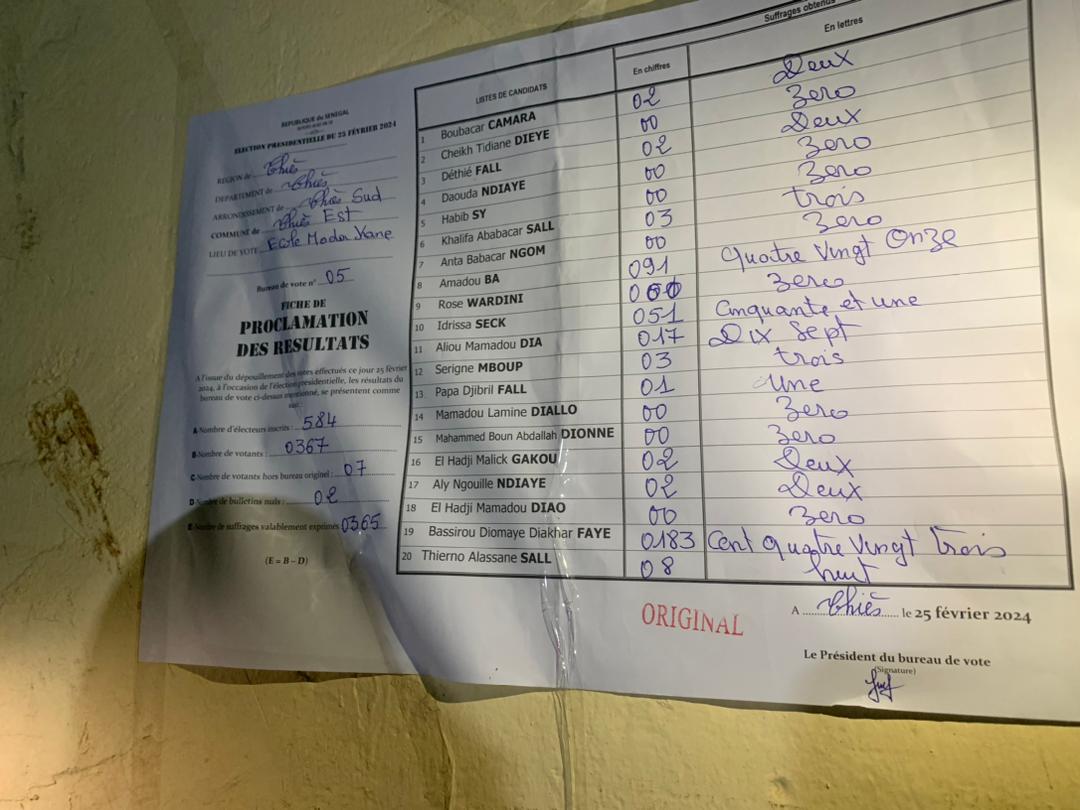 REPUBLIQUE du SENEGAL
ELECTION PRESIDENTIELLE DU 25 FÉVRIER 2024
REGION de Thiès
DEPARTEMENT de Thiès
ARRONDISSEMENT de Thiès Sud
COMMUNE de Thiès Est
LIEU DE VOTE Ecole Modou Kane
Bureau de vote n° 05
FICHE DE
PROCLAMATION
DES RESULTATS
A l'issue du dépouillement des votes effectués ce jour 25 février
2024, à l'occasion de l'élection présidentielle, les résultats du
bureau de vote ci-dessus mentionné, se présentent comme
suit :
A-Nombre d'électeurs inscrits : 584
B-Nombre de votants : 0367
C-Nombre de votants hors bureau originel : 07
D-Nombre de bulletins nuls : 02
E-Nombre de suffrages valablement exprimés 0365
(E = B – D)
LISTES DE CANDIDATS
Suffrages obtenus
En chiffres
En lettres
1 Boubacar CAMARA 02 Deux
2 Cheikh Tidiane DIEYE 00 Zero
3 Déthié FALL 02 Deux
4 Daouda NDIAYE 00 Zero
5 Habib SY 00 Zero
6 Khalifa Ababacar SALL 03 trois
7 Anta Babacar NGOM 00 Zero
8 Amadou BA 091 Quatre Vingt Onze
9 Rose WARDINI 000 Zero
10 Idrissa SECK 051 Cinquante et une
11 Aliou Mamadou DIA 017 Dix Sept
12 Serigne MBOUP 03 trois
13 Papa Djibril FALL 01 Une
14 Mamadou Lamine DIALLO 00 Zero
15 Mahammed Boun Abdallah DIONNE 00 Zero
16 El Hadji Malick GAKOU 02 Deux
17 Aly Ngouille NDIAYE 02 Deux
18 El Hadji Mamadou DIAO 00 Zero
19 Bassirou Diomaye Diakhar FAYE 0183 Cent Quatre Vingt Trois
20 Thierno Alassane SALL 08 huit
ORIGINAL
A Thiès le 25 février 2024
Le Président du bureau de vote
(Signature)